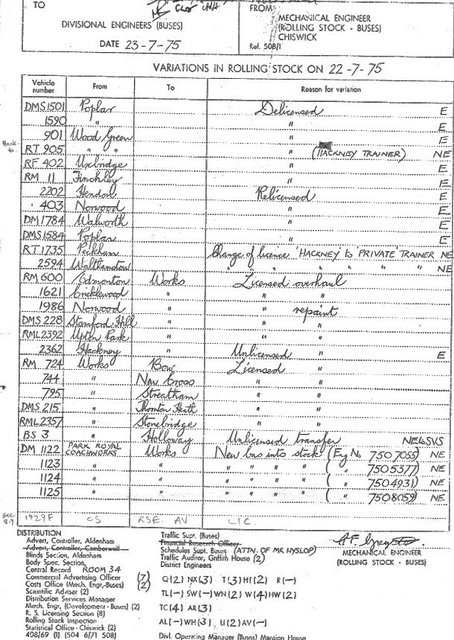 TO
DIVISIONAL ENGINEERS (BUSES)
DATE 23-7-75
FROM
MECHANICAL ENGINEER
(ROLLING STOCK - BUSES)
CHISWICK
Ref. 508/1
VARIATIONS IN ROLLING STOCK ON 22-7-75
Vehicle number From To Reason for variation
DMS1501 Poplar Delicensed E
1590 " " E
901 Wood Green " E
RT 905 " " " (HACKNEY TRAINER) NE
RF 402 Uxbridge " E
RM 11 Finchley " E
2202 Hendon Relicensed E
403 Norwood " E
DM 1784 Walworth " E
DMS 1584 Poplar " E
RT 1735 Peckham Change of licence 'HACKNEY to PRIVATE TRAINER NE
2594 Walthamstow " " " " " NE
RM 600 Edmonton Works Licensed overhaul
1621 Cricklewood " " "
1986 Norwood " " repaint
DMS 228 Stamford Hill " " "
RML 2392 Upton Park " " "
2362 Hackney " Unlicensed " E
RM 724 Works Bow Licensed "
744 " New Cross " "
795 " Streatham " "
DMS 215 " Thornton Heath " "
RML 2357 " Stonebridge " "
BS 3 " Holloway Unlicensed transfer NE&SVS
DM 1122 PARK ROYAL COACHWORKS Works New bus into stock (Eng No 7507055) NE
1123 " " " " " " ( " 7505377) NE
1124 " " " " " " ( " 7504931) NE
1125 " " " " " " ( " 7508059) NE
1929F CS RSE. AV LIC.
DISTRIBUTION
Advert. Controller, Aldenham
Advert. Controller, Camberwell
Blinds Section, Aldenham
Body Spec. Section,
Central Record ROOM 34
Commercial Advertising Officer (7)
Costs Office (Mech. Engr.-Buses) (2)
Scientific Adviser (2)
Distribution Services Manager
Mech. Engr. (Development - Buses) (2)
R. S. Licensing Section (8)
Rolling Stock Inspection
Statistical Office, Cent. Rds (2)
408/69 (1) (504 6/71 508)
Traffic Supt. (Buses)
Financial Research Officer
Schedules Supt. Buses (ATTN. OF MR. HYSLOP)
Traffic Auditor, Griffith House (2)
District Engineers
Q(2) NX(3) T(3) HT(2) R(-)
TL(-) SW(-) WN(2) W(4) HW(2)
TC(4) AR(3)
AL(-) WH(3) U(2) AV(-)
Divl. Operating Manager (Buses) Mansion House
MECHANICAL ENGINEER
(ROLLING STOCK - BUSES)